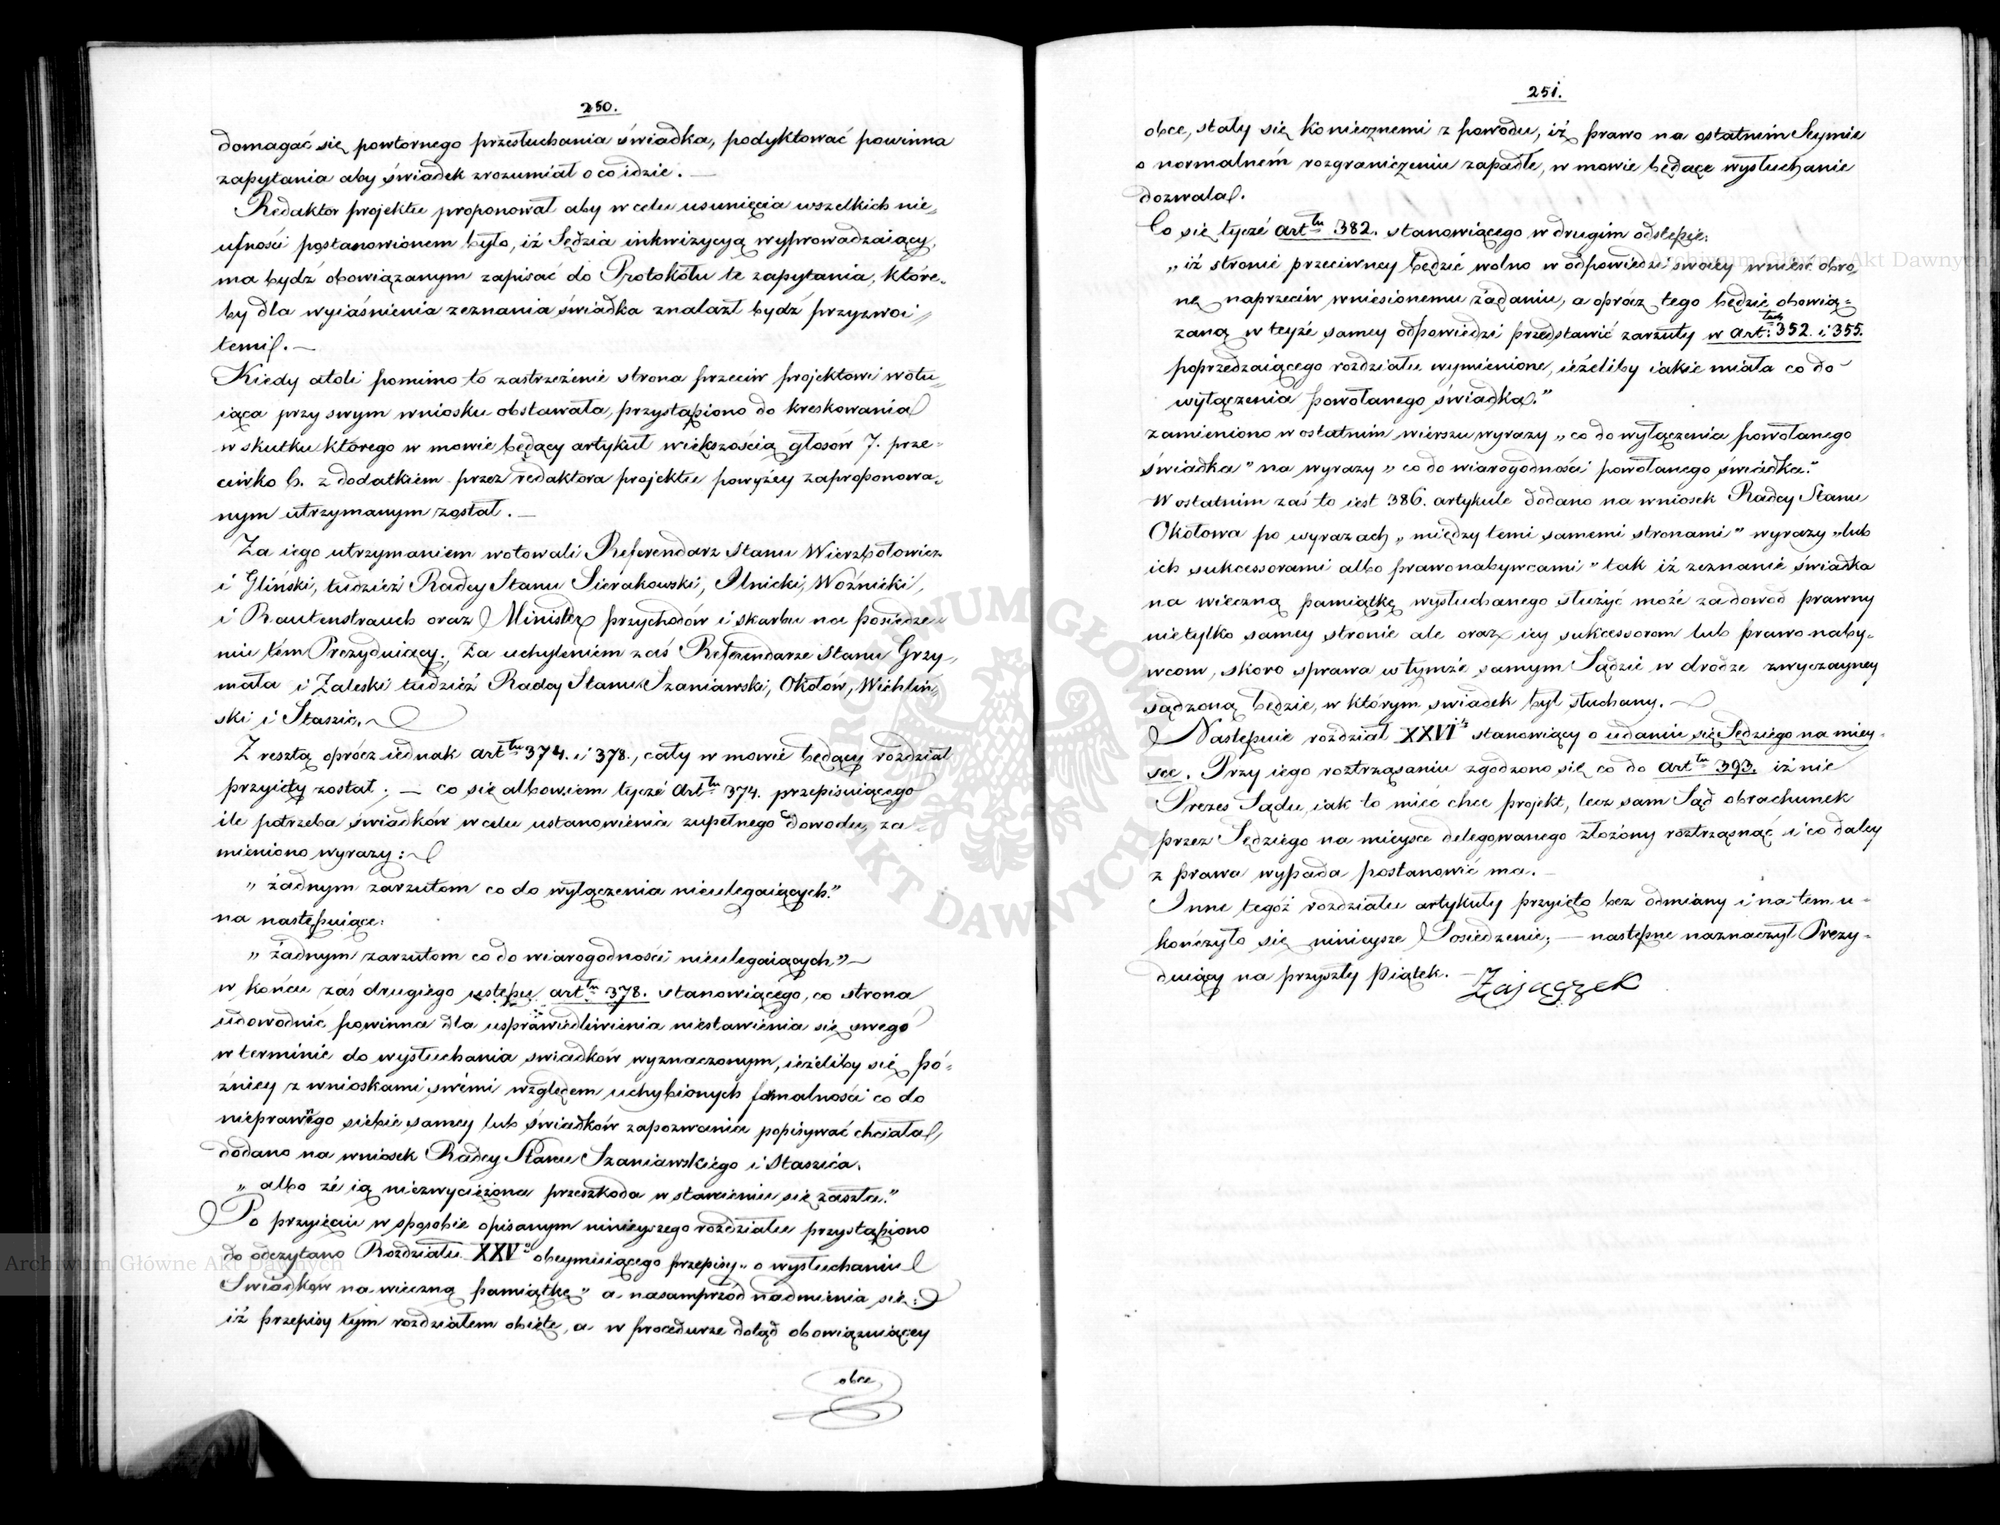 250.
domagać się powtornego przesłuchania świadka, podyktować powinna
zapytania aby świadek zrozumiał o co idzie. —
Redaktor projektu proponował aby w celu usunięcia wszelkich nie„
ufności postanowionem było, iż Sędzia inkwizycyą wyprowadzaiący,
ma bydź obowiązanym zapisać do Protokółu te zapytania, które„
by dla wyiaśnienia zeznania świadka znalazł bydź przyzwoi„
temi. —
Kiedy atoli pomimo to zastrzeżenie strona przeciw projektowi wotu„
iąca przy swym wniosku obstawała, przystąpiono do kreskowania
w skutku którego w mowie będący artykuł większością głosów 7. prze„
ciwko 6. z dodatkiem przez redaktora projektu powyżey zaproponowa„
nym utrzymanym został. —
Za iego utrzymaniem wotowali Referendarz Stanu Wierzbołowicz
i Gliński, tudzież Radcy Stanu Sierakowski, Ilnicki, Woźnicki,
i Rautenstrauch oraz Minister przychodów i skarbu na posiedze„
niu tém Prezyduiący. Za uchyleniem zaś Referendarze Stanu Grzy„
mała i Zaleski tudzież Radcy Stanu Szaniawski, Okołów, Wichliń
ski i Staszic.
Z resztą oprócz iednak artłu 374. i 378., cały w mowie będący rozdział
przyięty został; — co się albowiem tycze Artłu 374. przepisuiącego
ile potrzeba świadków w celu ustanowienia zupełnego dowodu, za„
mieniono wyrazy:
„ żadnym zarzutom co do wyłączenia nieulegaiących."
na następuiące:
„ żadnym zarzutom co do wiarogodności nieulegaiących" —
w końcu zaś drugiego ustępu artłu 378. stanowiącego, co strona
udowodnić powinna dla usprawiedliwienia niestawienia się swego
w terminie do wysłuchania świadków wyznaczonym, ieżeliby się pó„
źniey z wnioskami swémi względem uchybionych formalności co do
nieprawego siebie samey lub świadków zapozwania popisywać chciała,
dodano na wniosek Radcy Stanu Szaniawskiego i Staszica.
„ albo że ią niezwyciężona przeszkoda w stawieniu się zaszła."
Po przyięciu w sposobie opisanym ninieyszego rozdziału przystąpiono
do odczytano Rozdziału XXVo obeymuiącego przepisy „ o wysłuchaniu
Swiadków na wieczną pamiątkę" a nasamprzód nadmienia się:
iż przepisy tym rozdziałem obięte, a w procedurze dotąd obowiązuiącey
obce
251.
obce, stały się koniecznemi z powodu, iż prawo na ostatnim Seymie
o normalném rozgraniczeniu zapadłe, w mowie będące wysłuchanie
dozwala.
Co się tycze artłu 382. stanowiącego w drugim odstępie:
„ iż stronie przeciwney będzie wolno w odpowiedzi swoiey wnieść obro„
nę naprzeciw wniesionemu żądaniu, a oprócz tego będzie obowią„
zaną w teyże samey odpowiedzi przedstawić zarzuty w art: 352. i 355.
poprzedzaiącego rozdziału wymienione, ieżeliby iakie miała co do
wyłączenia powołanego świadka."
zamieniono w ostatnim wierszu wyrazy „ co do wyłączenia powołanego
świadka" na wyrazy „ co do wiarogodności powołanego świadka."
W ostatnim zaś to iest 386. artykule dodano na wniosek Radcy Stanu
Okołowa po wyrazach „ między temi samemi stronami" wyrazy „lub
ich sukcessorami albo prawonabywcami" tak iż zeznanie świadka
na wieczną pamiątkę wysłuchanego służyć może za dowód prawny
nietylko samey stronie ale oraz iey sukcessorom lub prawo naby„
wcom, skoro sprawa w tymże samym Sądzie w drodze zwyczayney
sądzoną będzie, w którym swiadek był słuchany. —
Następuie rozdział XXVI stanowiący o udaniu się Sędziego na miey„
sce. Przy iego roztrząsaniu zgodzono się co do artłu 393. iż nie
Prezes Sądu, iak to mieć chce projekt, lecz sam Sąd obrachunek
przez Sędziego na mieysce delegowanego złożony roztrząsnąć i co daley
z prawa wypada postanowić ma. —
Inne tegoż rozdziału artykuły przyięto bez odmiany i na tem u„
kończyło się ninieysze Posiedzenie; — następne naznaczył Prezy„
duiący na przyszły Piątek. —
Zajączek
Archiwum Główne Akt Dawnych
ARCHIWUM GŁÓWNE AKT DAWNYCH
Archiwum Główne Akt Dawnych